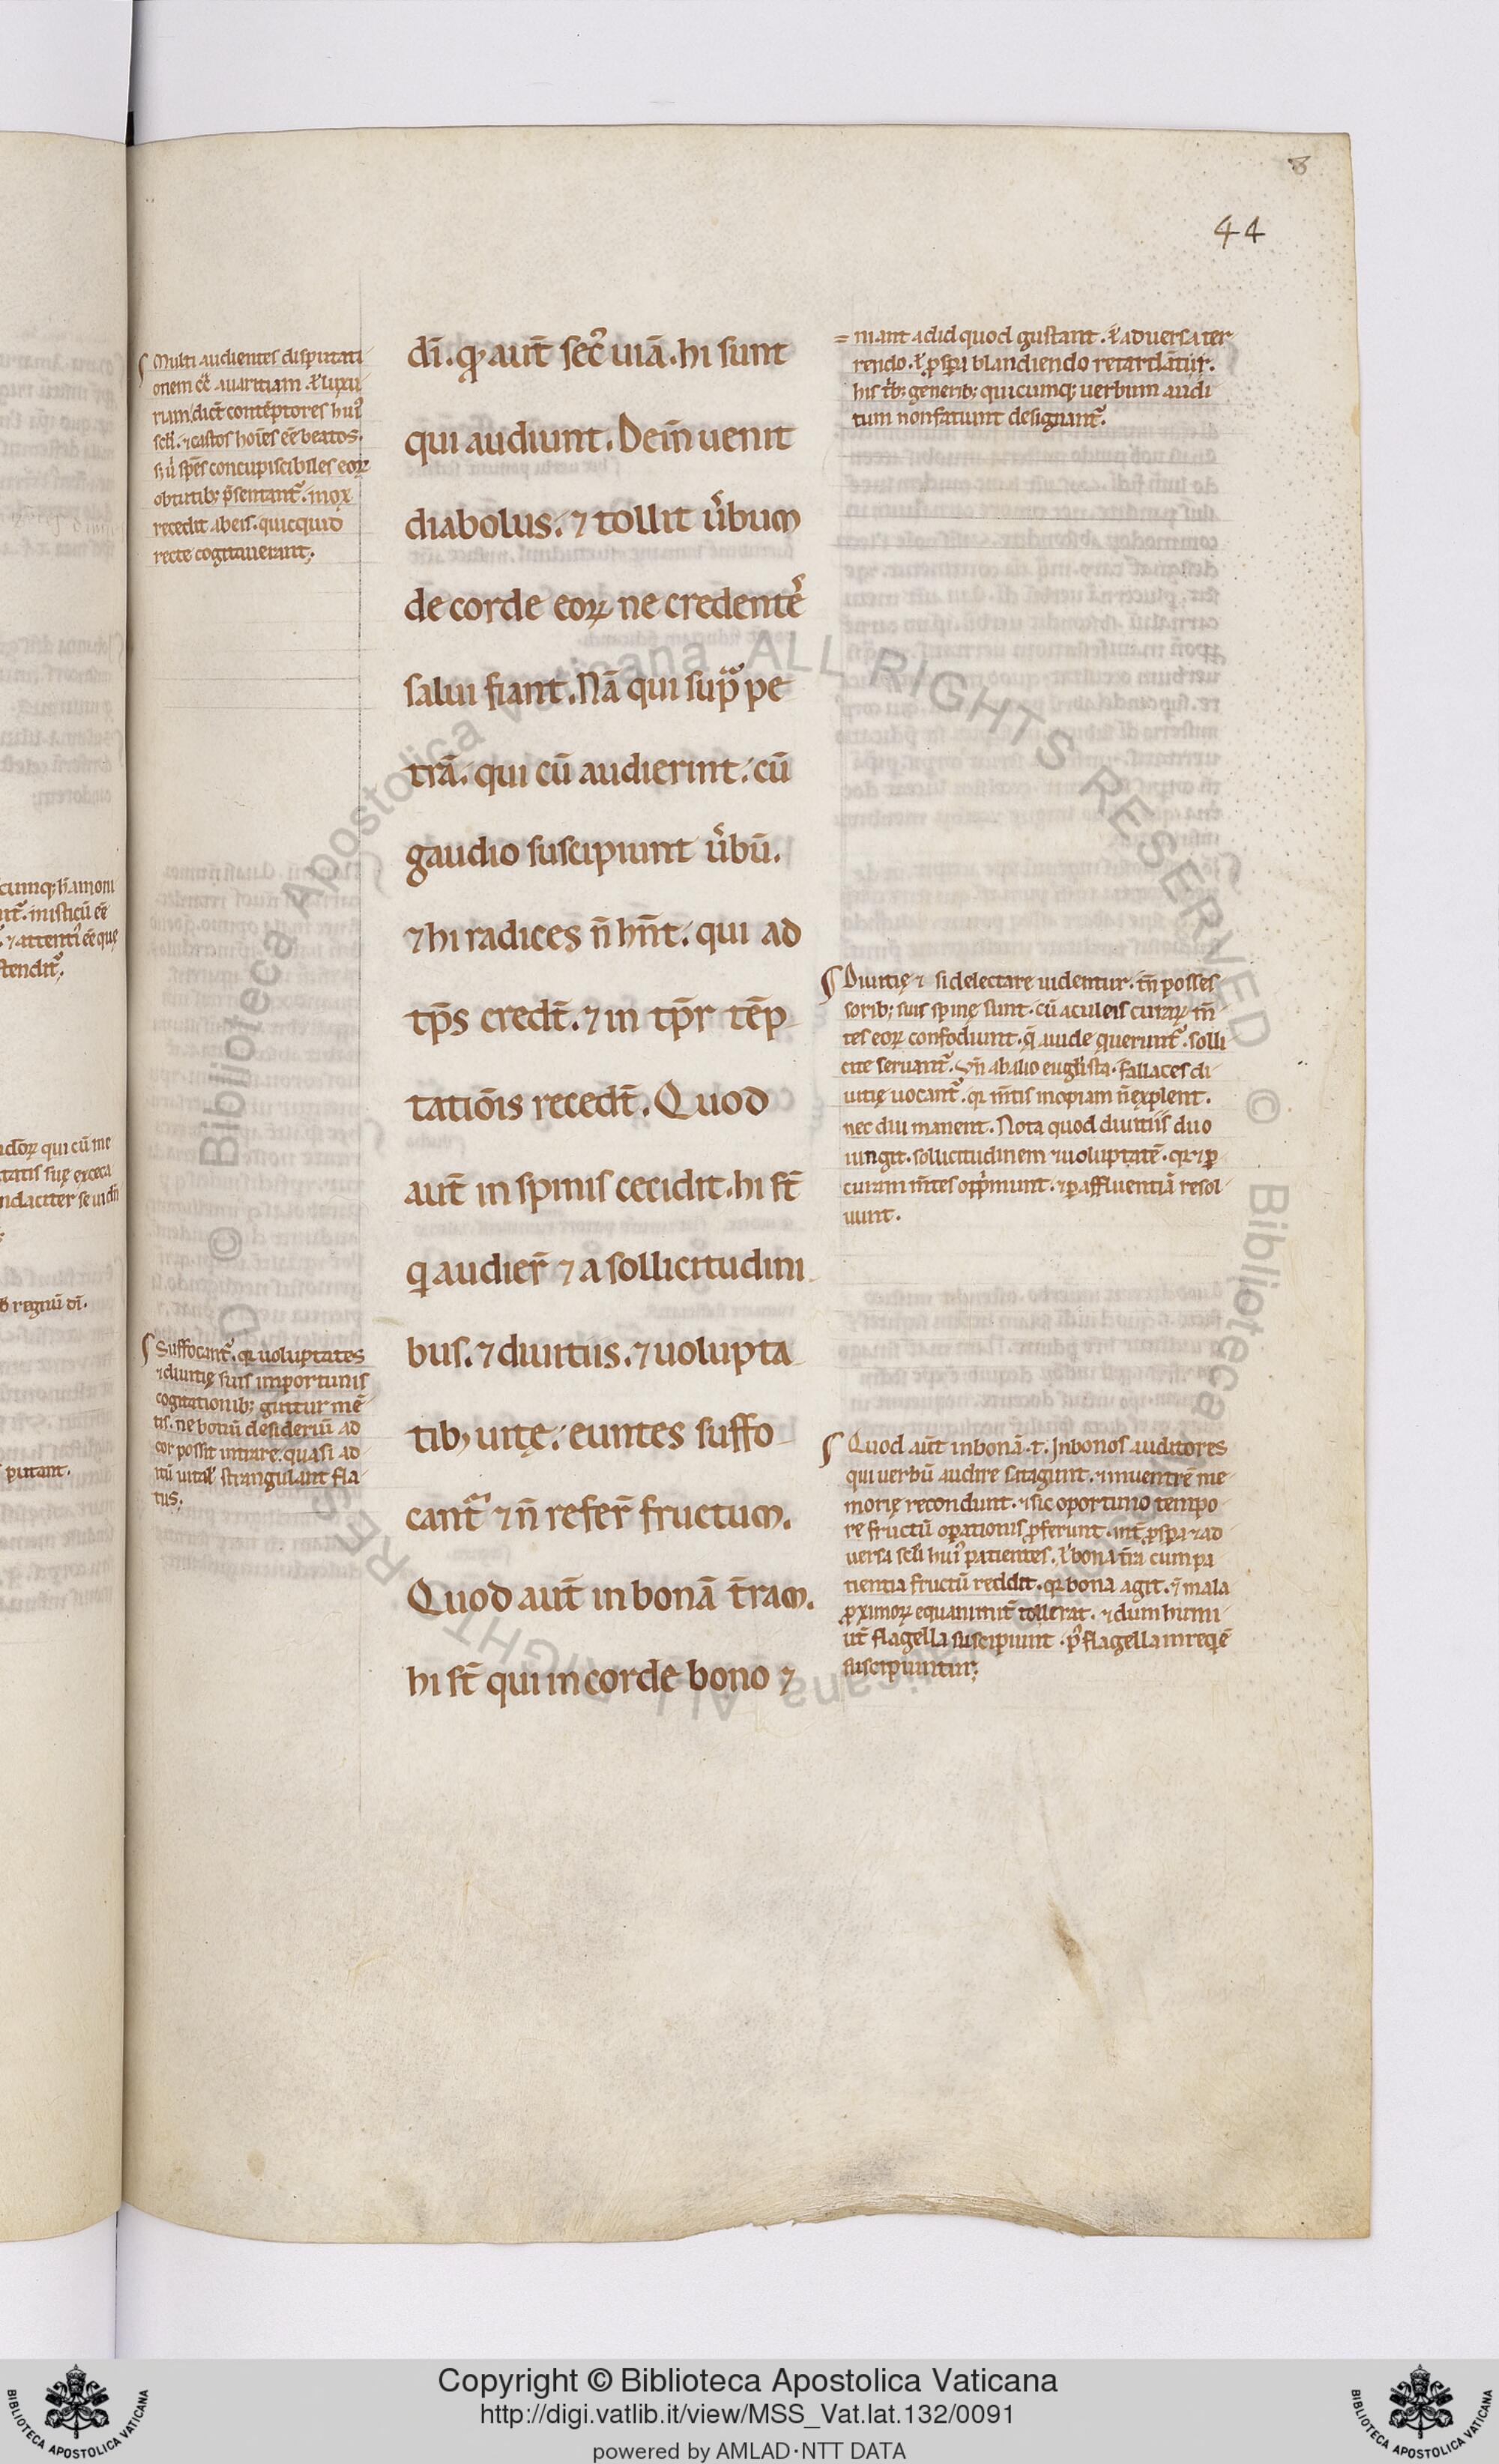 8
44
Multi audientes disputati
onem ct̄ auaritiam .ł luxu
riam. dict̄ contēptores hui᷒
scłi. ⁊ castos hoīes eē beatos.
recedit ab eis. quicquid
recte cogitauerant;
dī. q, aut̄ sec᷒ uiā. hi sunt
qui audiunt. Dein̄ uenit
diabolus. ⁊ tollit ūbum
de corde eoꝝ ne credentē
salui fiant. Nā qui sup̄ pe
trā. qui cū audierint. cū
gaudio suscipiunt ūbū.
⁊ hi radices n̄ hn̄t. qui ad
tp̄s credt̄. ⁊ in tp̄r tēp
tatiōis recedt̄. Quod
aut̄ in spinis cecidit. hi st̄
q audier̄ ⁊ a sollicitudini
bus. ⁊ diuitiis. ⁊ uolupta
tib; uitę. euntes suffo
cant᷑ ⁊ n̄ refer̄ fructum.
Quod aut̄ in bonā t̄ram.
hi st̄ qui in corde bono ⁊
= niant ad id quod gustant. ł aduersa ter
rendo. ł ꝓspa blandiendo retardāt᷑.
his t̄b; generib; quicumq; uerbum audi
tum non faciunt designant᷑.
Diuitię ⁊ si delectare uidentur. tn̄ posses
sorib; suis spinę sunt. cū aculeis curaꝝ m̄
tes eoꝝ confodiunt. q̄ auide querunt᷑. solli
cite seruant᷑. Vn̄ ab alio eugłista. fallaces di
uitię uocant᷑. qꝛ m̄tis inopiam n̄ explent.
nec diu manent. Nota quod diuitiis duo
iungit. sollicitudinem ⁊ uoluptatē. qꝛ ⁊ ꝑ
curam m̄tes opp̄munt. ⁊ ꝑ affluentiā resol
uunt.
Suffocant᷑. qꝛ uoluptates
⁊ diuitię suis importunis
cogitationib; guttur mē
tis. ne bonū desideriū ad
cor possit intrare. quasi ad
itū uital᷒ strangulant fla
tus;
Quod aut̄ in bonā .t. In bonos auditores
qui uerbū audire satagunt. ⁊ in uentrē me
morię recondunt. ⁊ sic oportuno tempo
re fructū oꝑationis ꝓferunt. int̄ ꝓspa ⁊ ad
uersa scłi hui᷒ patientes. ł bona t̄ra cum pa
tientia fructū reddit. qꝛ bona agit. ⁊ mala
ꝓximoꝝ equanimit̄ tollerat. ⁊ dum humi
lit̄ flagella suscipiunt. p᷒ flagella in reqiē
suscipiuntur;
Copyright © Biblioteca Apostolica Vaticana
http://digi.vatlib.it/view/MSS_Vat.lat.132/0091
powered by AMLAD·NTT DATA
BIBLIOTECA APOSTOLICA VATICANA
BIBLIOTECA APOSTOLICA VATICANA